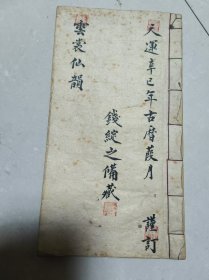 天運辛巳年古曆葭月 謹訂
錢綻之備藏
雲裳仙韻